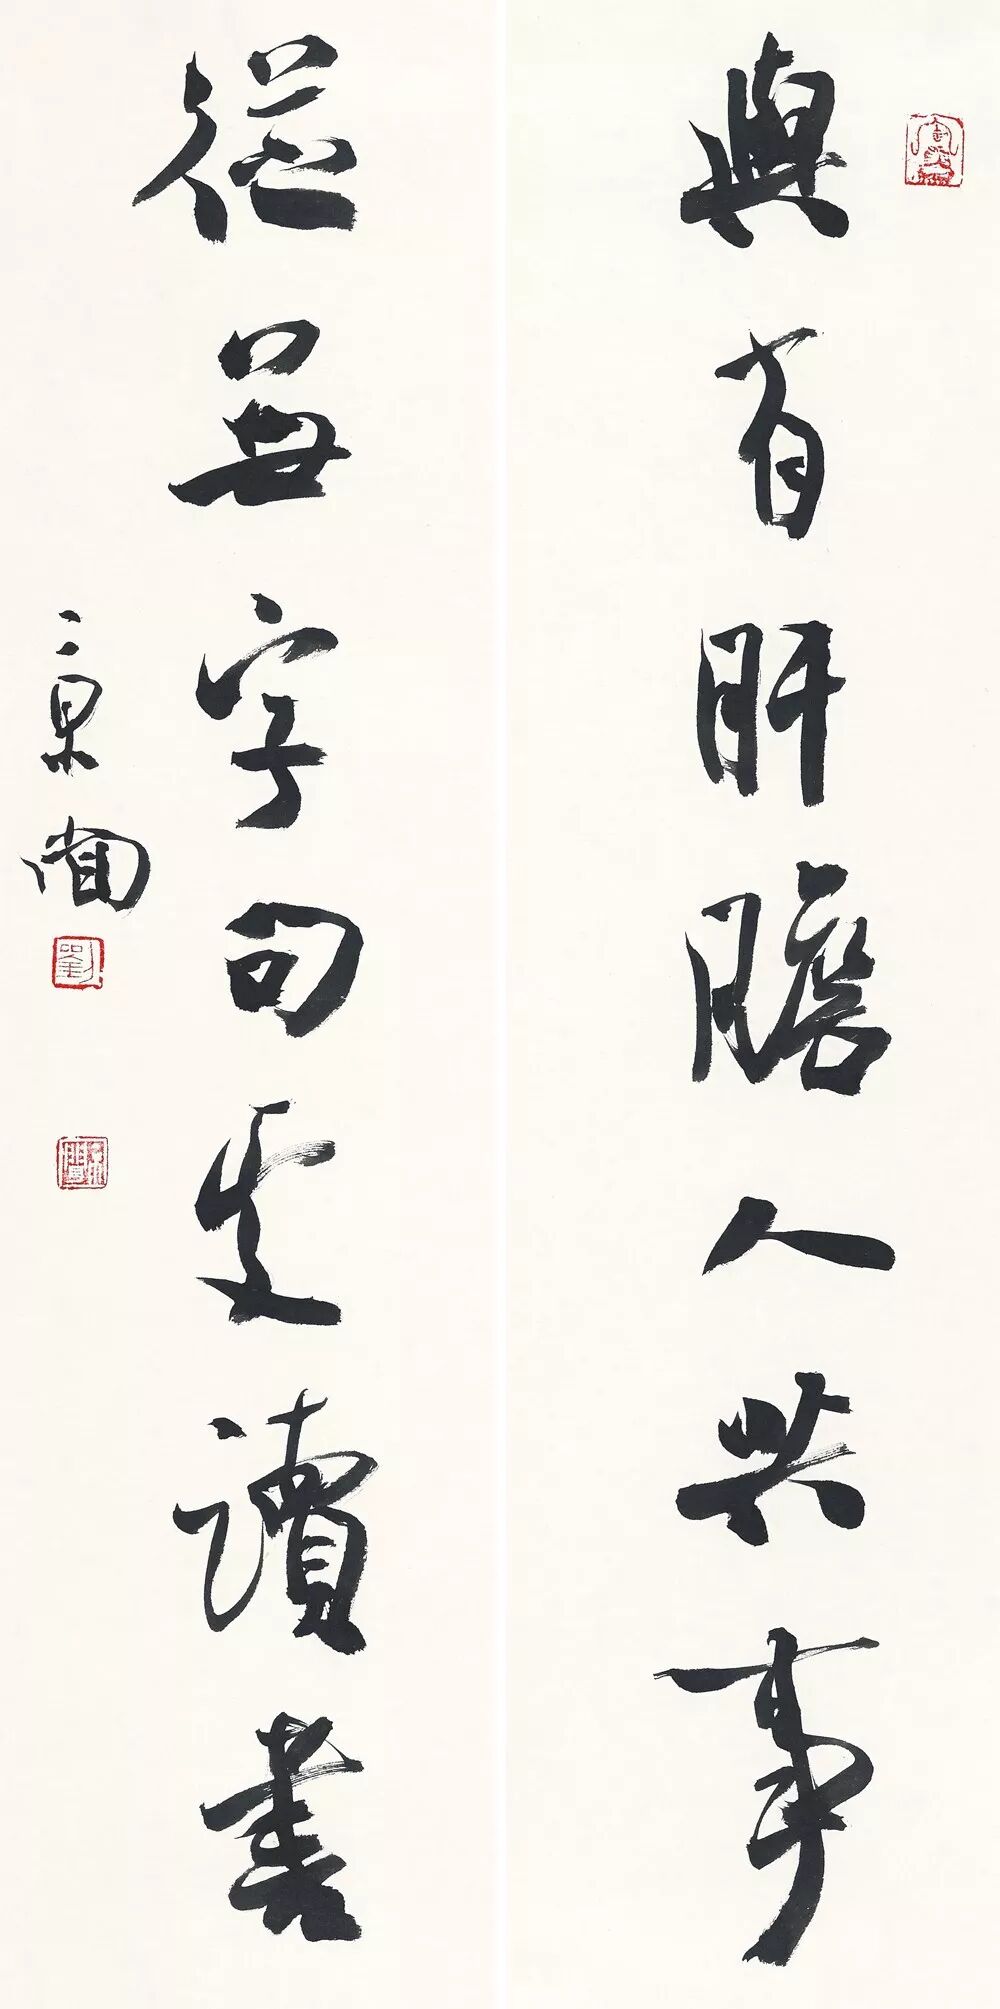 與有肝膽人共事
從無字句處讀書
劉